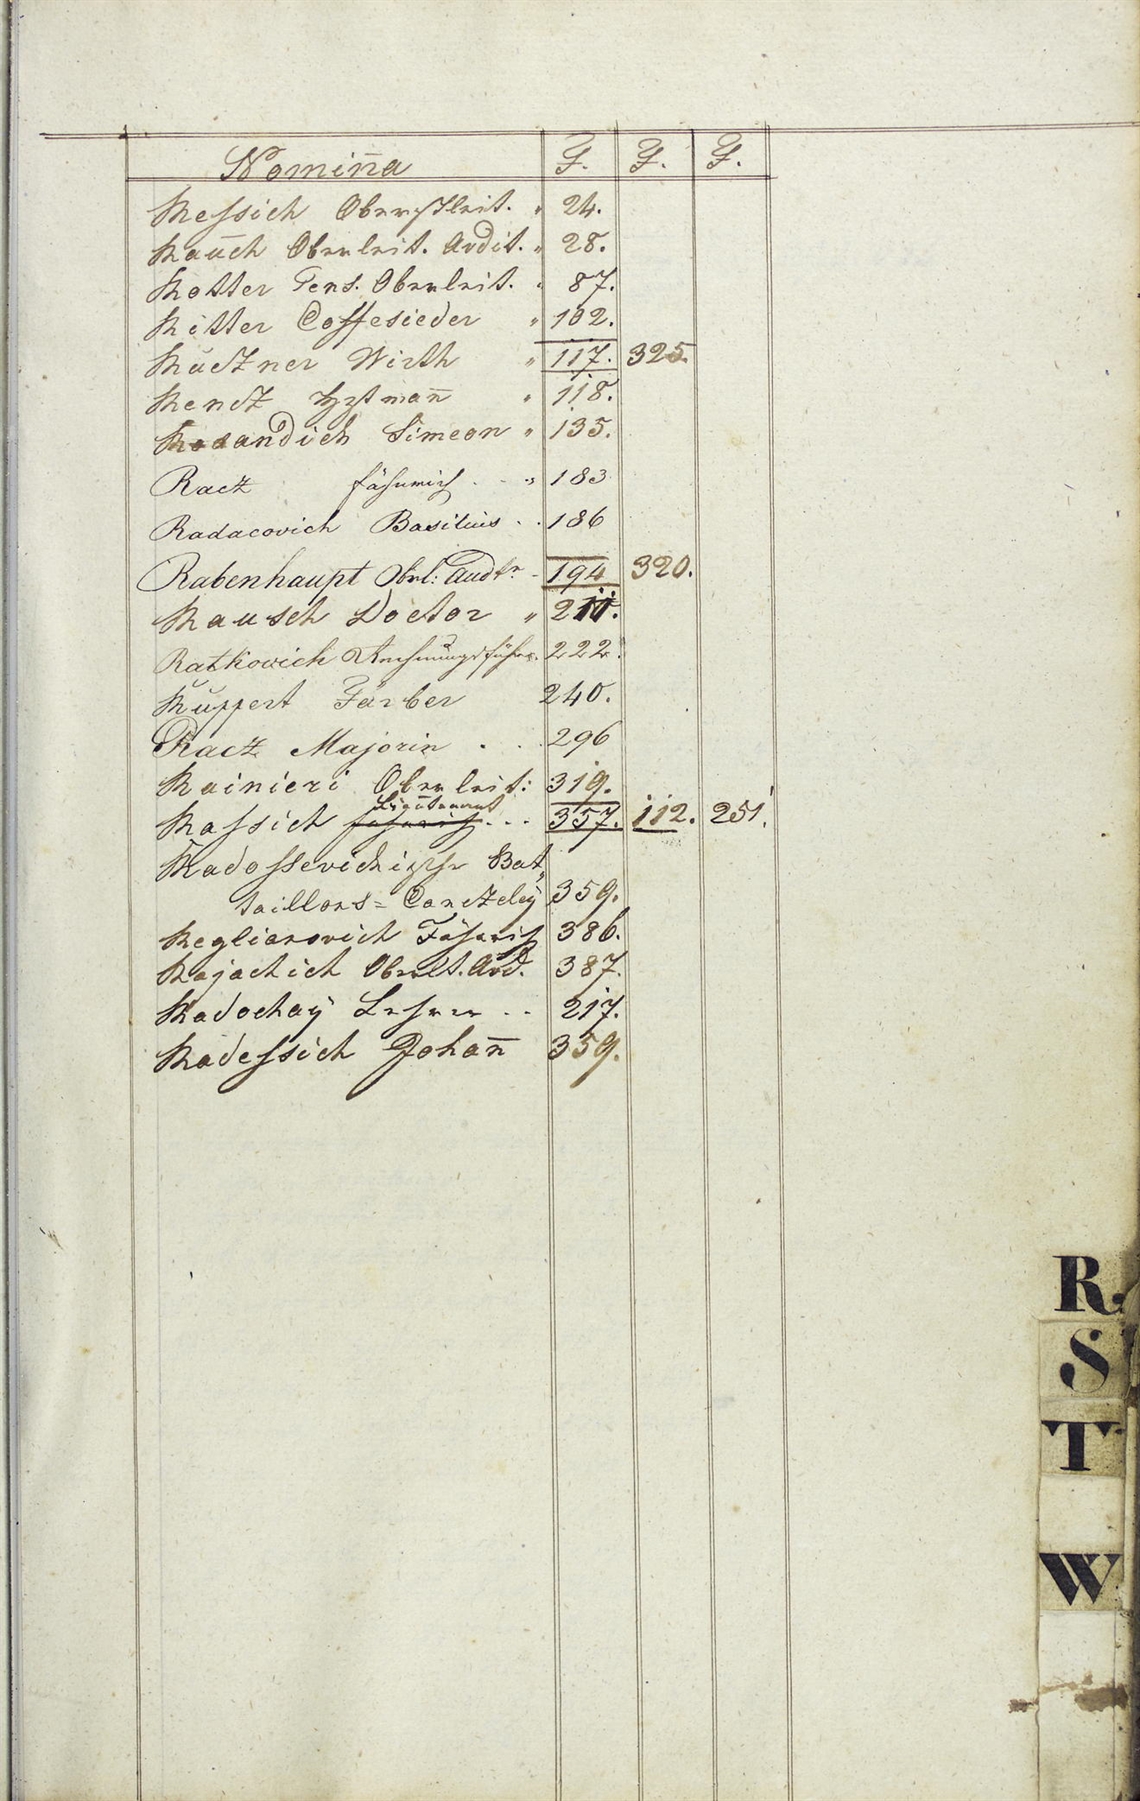 Nomin̄a F. F. F.
Ressich Oberstleit. " 24.
Rauch Oberleit. Audit. " 28.
Rotter Pens. Oberleit. " 87.
Ritter Coffesieder " 102.
Ruckner Wirth " 117. 325.
Rencz Hptman̄ " 118.
Rosandich Simeon " 135.
Racz Fähnrich . . " 183
Radacovich Basilius . . 186
Rabenhaupt Obrl: Audtr. - 194 320.
Rausch Doctor " 211.
Ratkovich Rechnungsführer. 222.
Ruppert Färber 240.
Racz Majorin . . . 296
Rainieri Oberleit: 319.
Leūtenant
Rassich Fähnrich . . . 357. 112. 251.
Radossevichische Bat„
taillons= Canczley 359.
Reglianovich Fähnrich 386.
Rajachich Oberlt. Aud. 387.
Radochay Lehrer . . 217.
Radessich Johan̄ 359.
R.
S
T
W